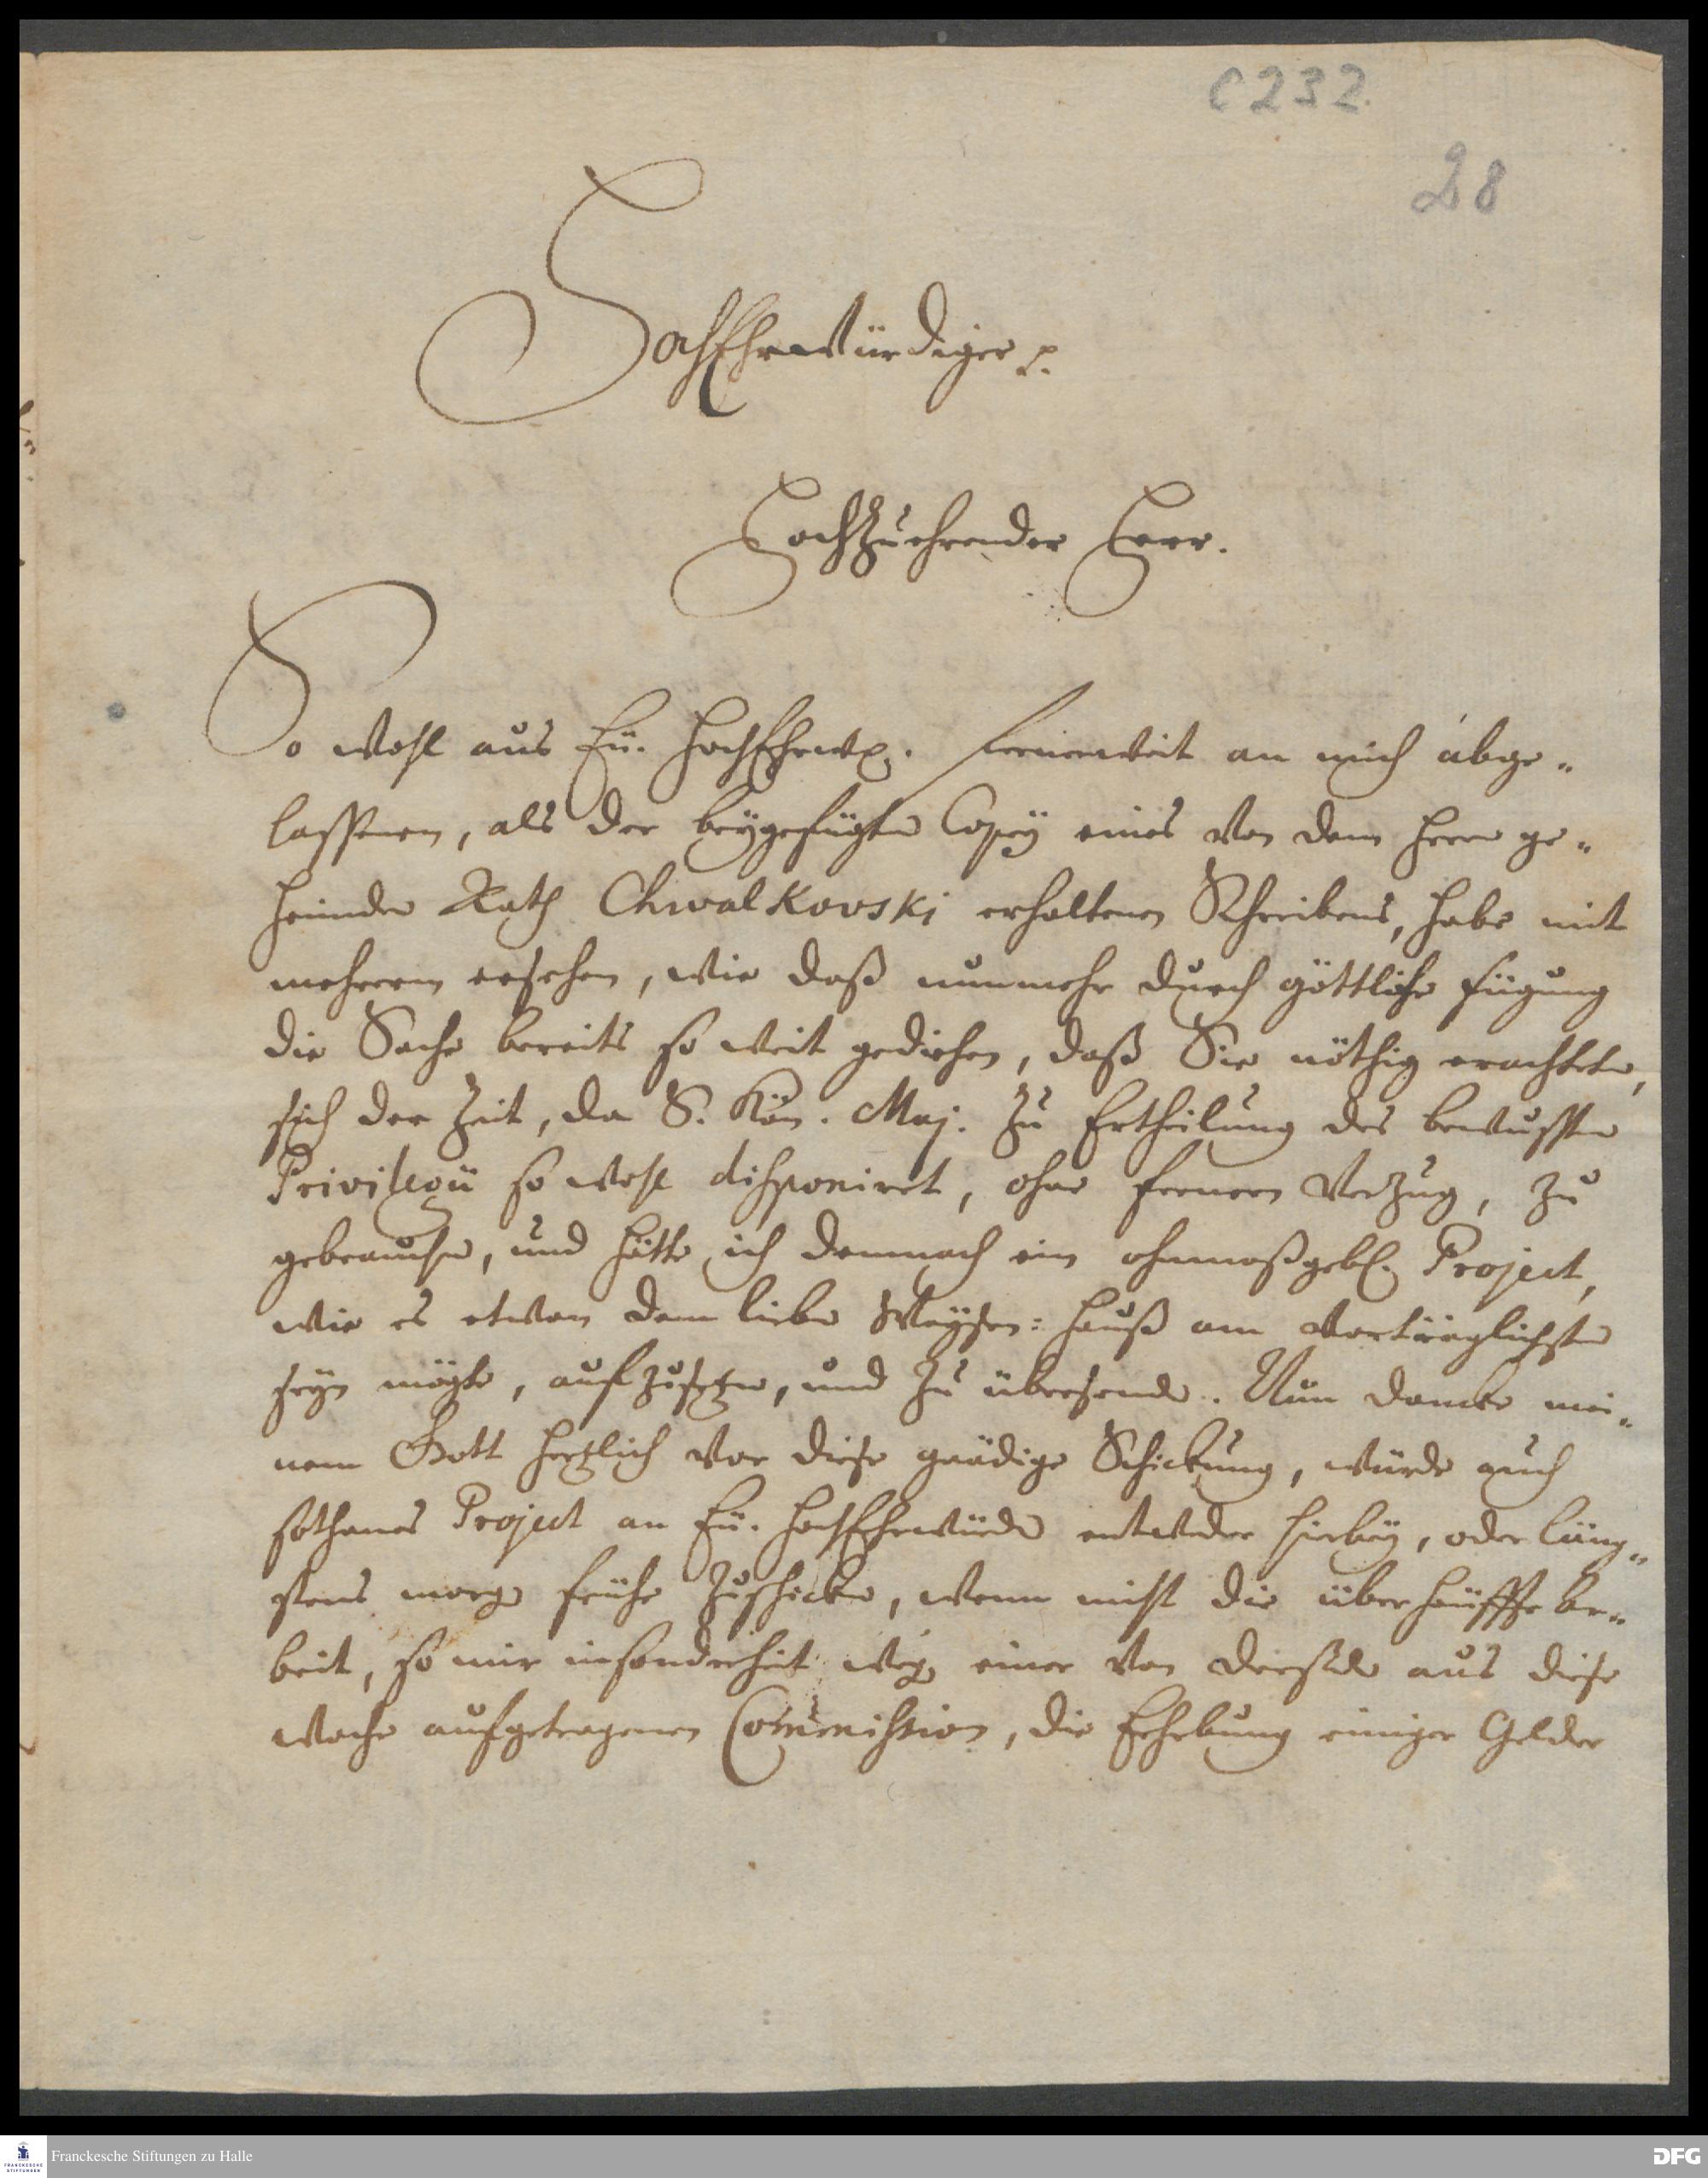 C 232.
28
HochEhrWürdiger p.
Hochzuehrender Herr.
So wohl aus Eü. HochEhrw. anderweit an mich abge-
lassenen, als der beygefügten Copey eines von dem Herrn ge-
heimden Rath Chwalkovski erhaltenen Schreibens, habe mit
mehrerm ersehen, wie daß nunmehr durch göttliche fügung
die Sache bereits so weit gediehen, daß Sie nöthig erachteten,
sich der Zeit, da S. Kön. Maj. zu Ertheilung des bewusten
Privilegii so wohl disponiret, ohne fernern Verzug, zu
gebrauchen, und hätte ich demnach ein ohnmaßgebl. Project,
wie es etwan dem lieben Waysen-Hauß am vorträglichsten
seyn mögte, aufzusetzen, und zu übersenden. Nun dancke mei-
nem Gott hertzlich vor diese gnädige Schickung, würde auch
sothanes Project an Eü. HochEhrwürden entweder hierbey, oder läng-
stens morgen frühe zuschicken, wenn nicht die überhäuffte Ar-
beit, so mir insonderheit wegen einer von aus diese
Woche aufgetragenen Commission, die Erhebung einiger Gelder
Franckesche Stiftungen zu Halle
DFG